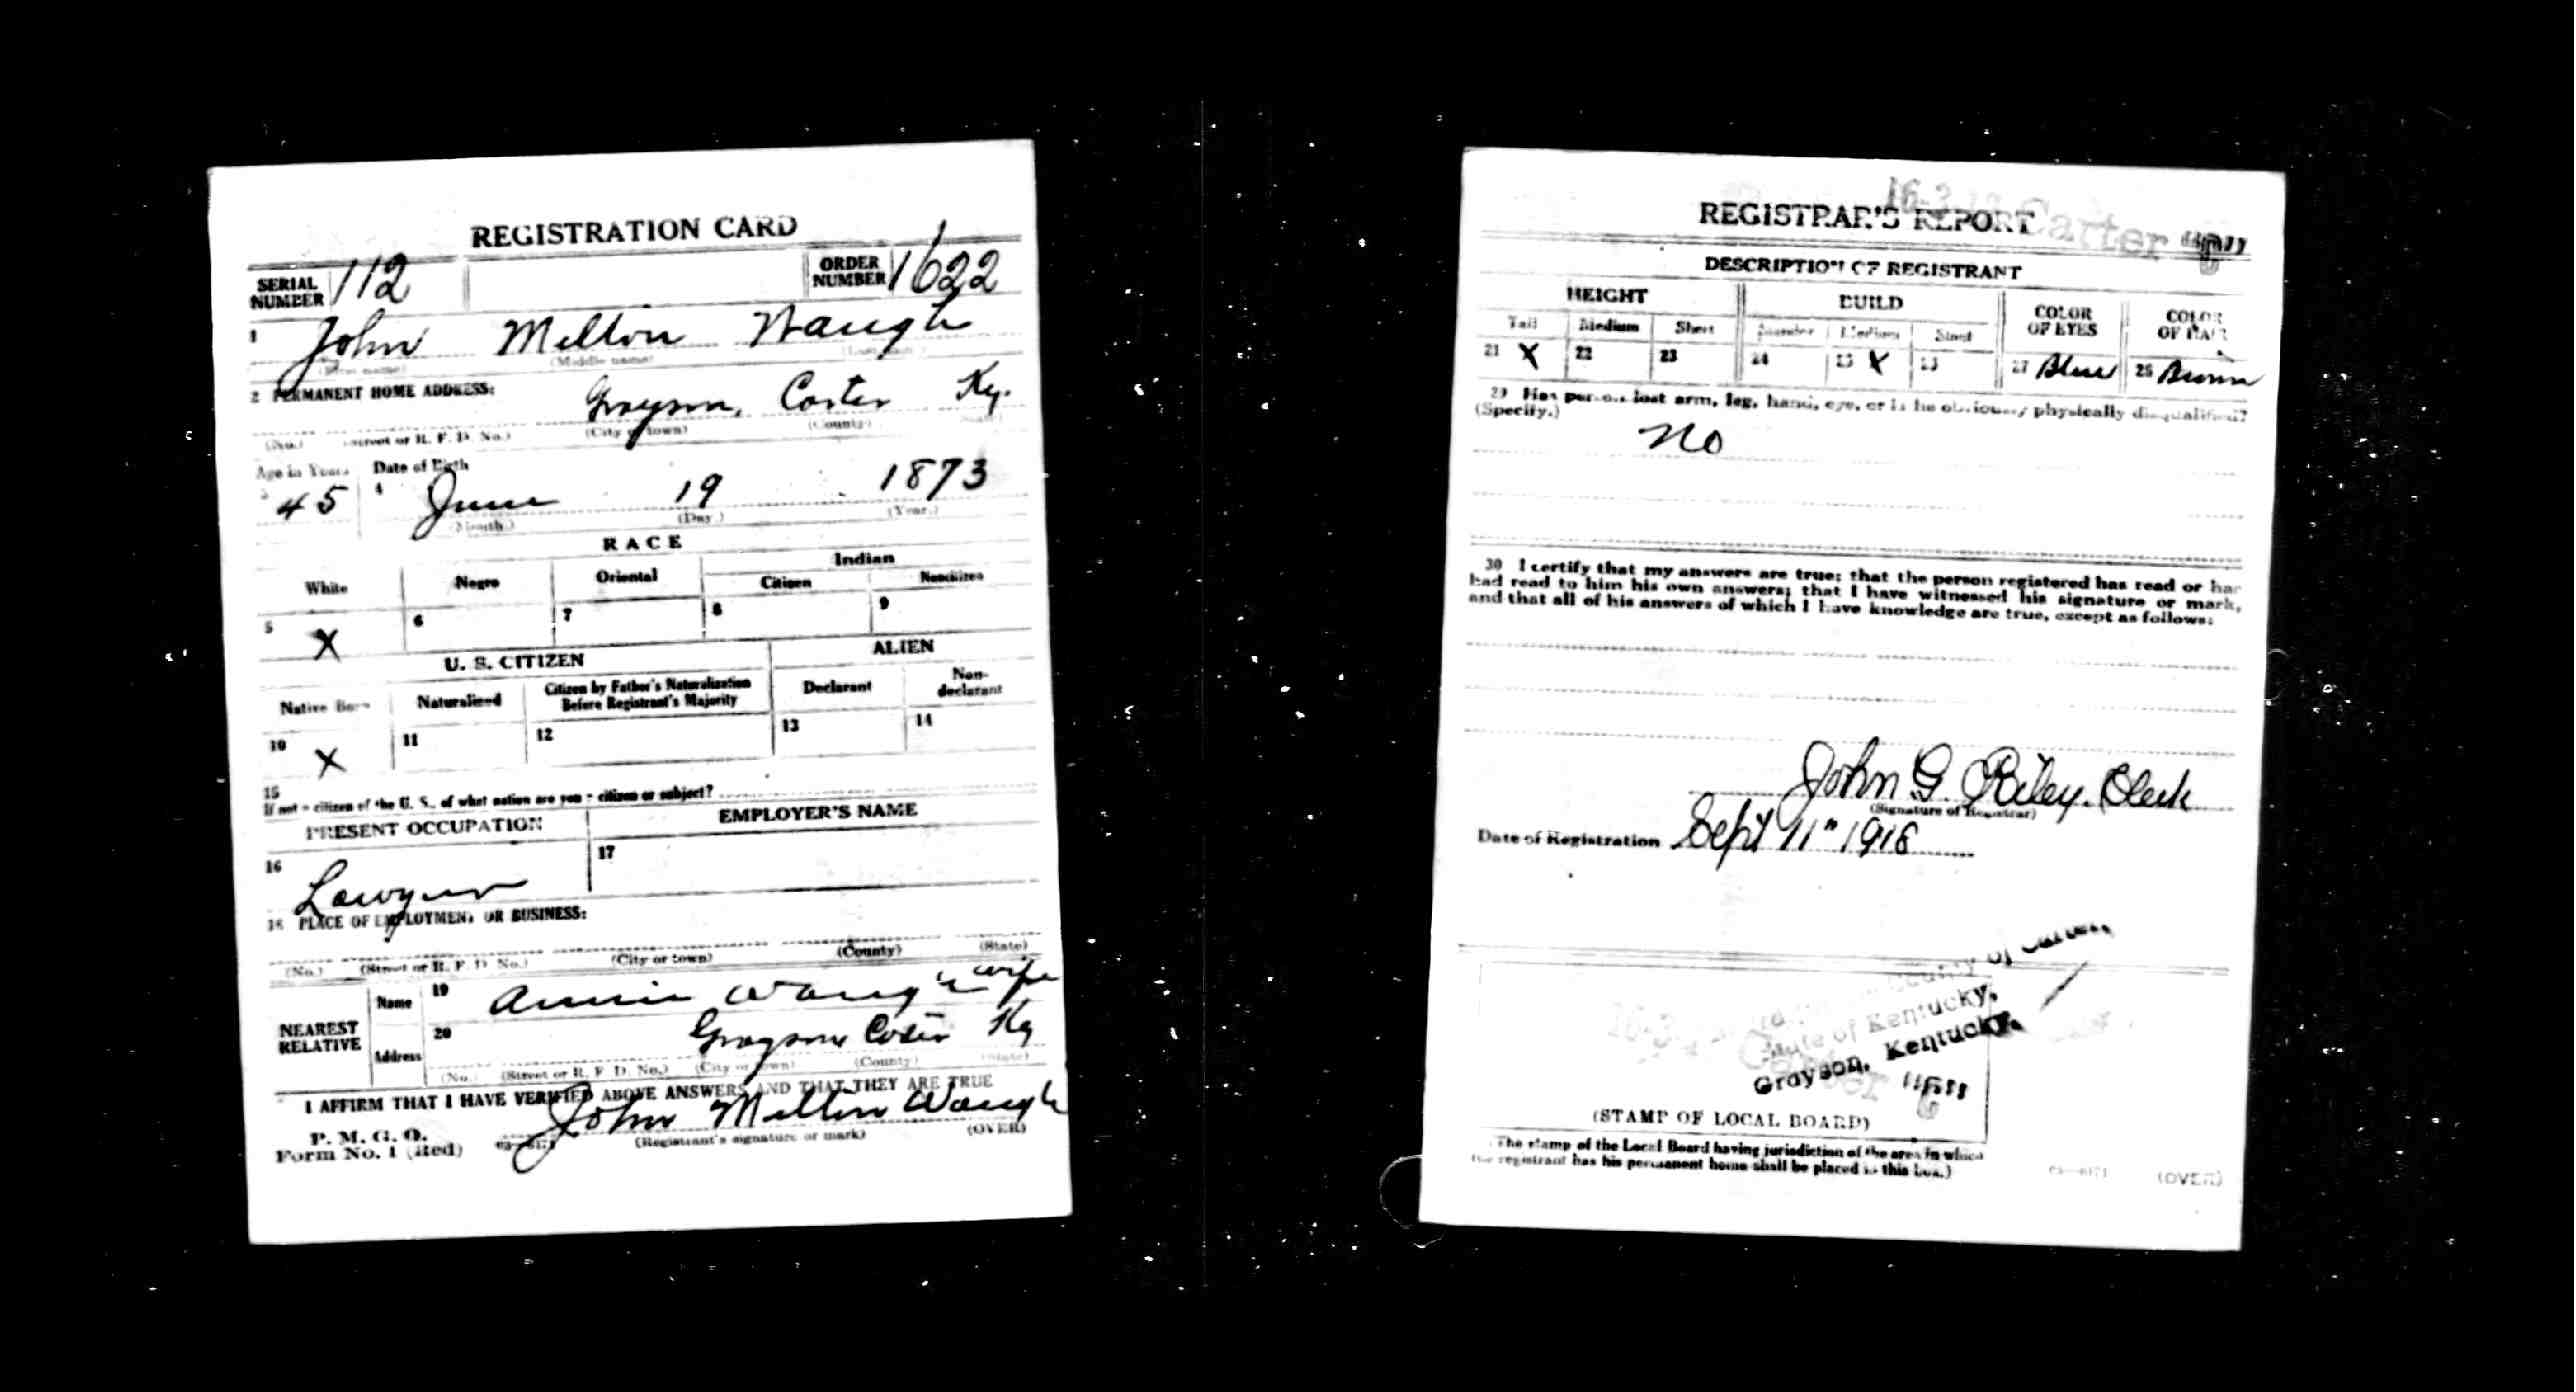 REGISTRATION CARD
SERIAL NUMBER 112 ORDER NUMBER 1622
1 John Melton Waugh
(First name) (Middle name) (Last name)
2 PERMANENT HOME ADDRESS:
Grayson, Carter Ky.
(No.) (Street or R. F. D. No.) (City or town) (County) (State)
Age in Years Date of Birth
3 45 4 June 19 1873
(Month.) (Day.) (Year.)
RACE
White Negro Oriental Indian
Citizen Noncitizen
5 X 6 7 8 9
U. S. CITIZEN ALIEN
Native Born Naturalized Citizen by Father's Naturalization Before Registrant's Majority Declarant Non-declarant
10 X 11 12 13 14
15
If not a citizen of the U. S., of what nation are you a citizen or subject?
PRESENT OCCUPATION EMPLOYER'S NAME
16 Lawyer 17
18 PLACE OF EMPLOYMENT OR BUSINESS:
(No.) (Street or R. F. D. No.) (City or town) (County) (State)
NEAREST RELATIVE Name 19 Annie Waugh wife
Address 20 Grayson Carter Ky
(No.) (Street or R. F. D. No.) (City or town) (County) (State)
I AFFIRM THAT I HAVE VERIFIED ABOVE ANSWERS AND THAT THEY ARE TRUE
P. M. G. O.
Form No. 1 (Red) John Melton Waugh
(Registrant's signature or mark) (OVER)
REGISTRAR'S REPORT
Carter
DESCRIPTION OF REGISTRANT
HEIGHT BUILD COLOR OF EYES COLOR OF HAIR
Tall Medium Short Slender Medium Stout
21 X 22 23 24 25 X 26 27 Blue 28 Brown
29 Has person lost arm, leg, hand, eye, or is he obviously physically disqualified?
(Specify.)
No
30 I certify that my answers are true; that the person registered has read or has
had read to him his own answers; that I have witnessed his signature or mark,
and that all of his answers of which I have knowledge are true, except as follows:
John G. Riley. Clerk
(Signature of Registrar)
Date of Registration Sept 11" 1918
County of Carter,
State of Kentucky,
Grayson, Kentucky.
(STAMP OF LOCAL BOARD)
(The stamp of the Local Board having jurisdiction of the area in which
the registrant has his permanent home shall be placed in this box.)
(OVER)